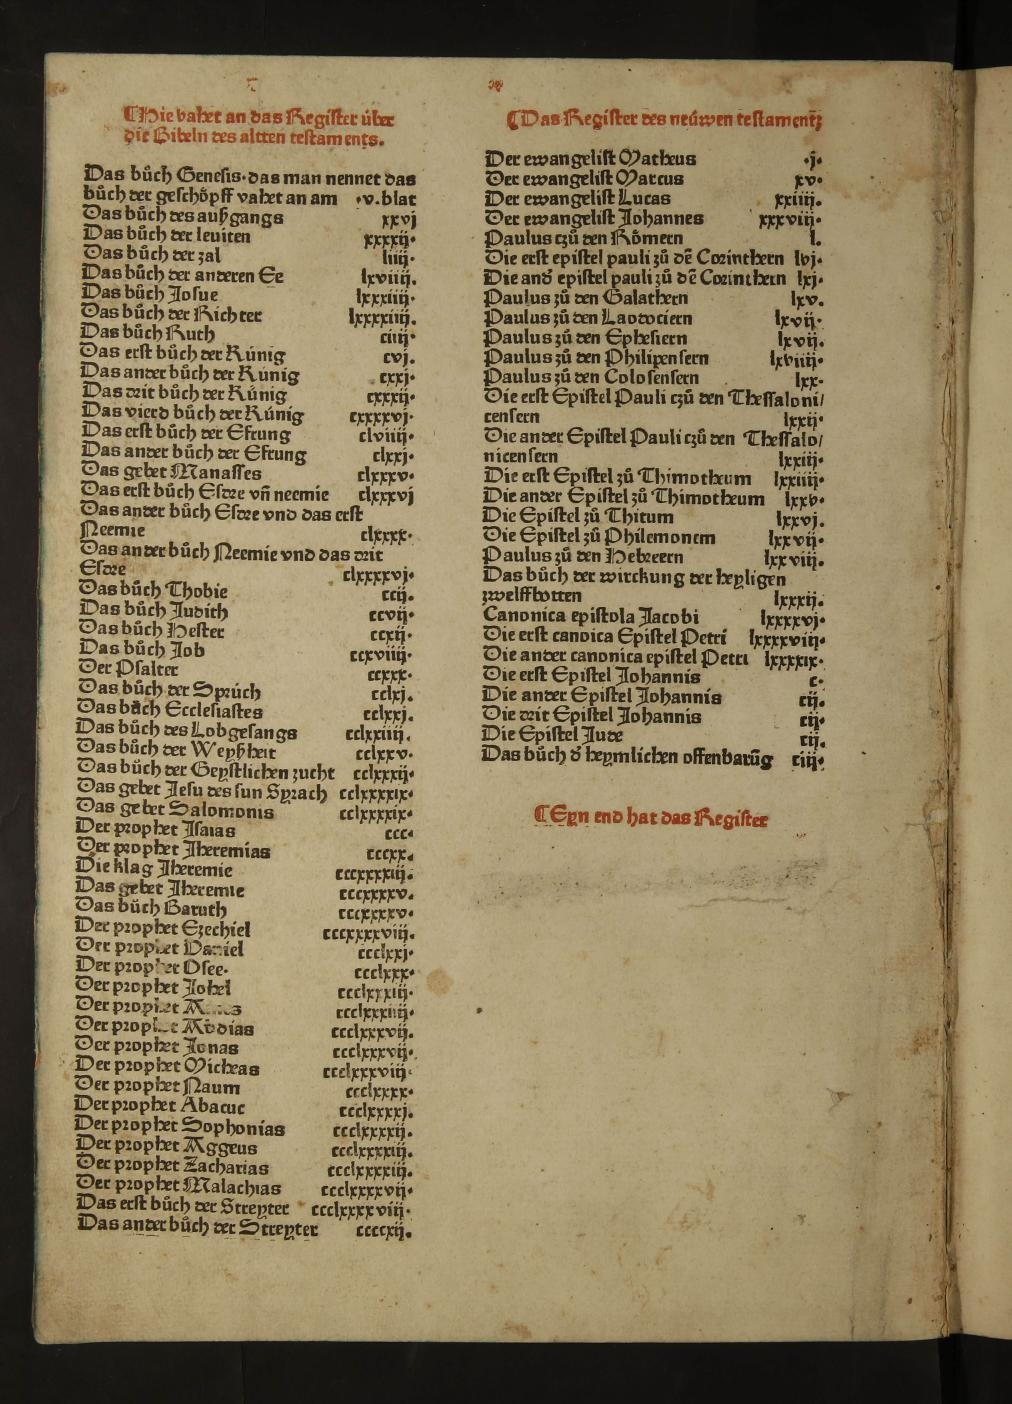 ¶Hie vahet an das Register über
die Bibeln des altten testaments.
Das bůch Genesis·das man nennet das
bůch der geschöpff vahet an am ·v.blat
Das bůch des außgangs xxvj
Das bůch der leuiten xxxxij·
Das bůch der zal liiij·
Das bůch der anderen Ee lxviiij.
Das bůch Josue lxxxiiij·
Das bůch der Richter lxxxxiiij.
Das bůch Ruth ciiij·
Das erst bůch der Künig cvj.
Das ander bůch der Künig cxxj·
Das drit bůch der Künig cxxxij·
Das vierd bůch der Künig cxxxxvj·
Das erst bůch der Efrung clviiij·
Das ander bůch der Efrung clxxj·
Das gebet Manasses clxxxv·
Das erst bůch Esdre vñ neemie clxxxvj
Das ander bůch Esdre vnd das erst
Neemie clxxxx·
Das ander bůch Neemie vnd das drit
Esdre clxxxxvj·
Das bůch Thobie ccij.
Das bůch Judith ccvij·
Das bůch Hester ccxij·
Das bůch Job ccxviiij·
Der Psalter ccxxx·
Das bůch der Sprüch cclxj.
Das bůch Ecclesiastes cclxxj.
Das bůch des Lobgesangs cclxxiiij.
Das bůch der Weyßheit cclxxv·
Das bůch der Geystlichen zucht cclxxxij·
Das gebet Jesu des sun Syrach cclxxxxix·
Das gebet Salomonis cclxxxxix·
Der prophet Isaias ccc·
Der prophet Jheremias cccxx.
Die klag Jheremie cccxxxxiij.
Das gebet Jheremie cccxxxxv.
Das bůch Baruch cccxxxxv·
Der prophet Ezechiel cccxxxxviij.
Der prophet Daniel ccclxxj·
Der prophet Osee· ccclxxx·
Der prophet Johel ccclxxxiij·
Der prophet ccclxxxiiij·
Der prophet Abdias ccclxxxvij.
Der prophet Jonas ccclxxxvij·
Der prophet Micheas ccclxxxviij·
Der prophet Naum ccclxxxx·
Der prophet Abacuc ccclxxxxj.
Der prophet Sophonias ccclxxxxij.
Der prophet Aggeus ccclxxxxiij.
Der prophet Zacharias ccclxxxxiij.
Der prophet Malachias ccclxxxxvij·
Das erst bůch der Streyter ccclxxxxviij·
Das ander bůch der Streyter ccccxij.
¶Das Register des neüwen testamentz
Der ewangelist Matheus ·j·
Der ewangelist Marcus xv·
Der ewangelist Lucas xxiiij.
Der ewangelist Johannes xxxviij·
Paulus czů den Römern l.
Die erst epistel pauli zů dē Corinthern lvj·
Die and̄ epistel pauli zů dē Corinthern lxj·
Paulus zů den Galathern lxv.
Paulus zů den Laodociern lxvij·
Paulus zů den Ephesiern lxvij.
Paulus zů den Philipensern lxviiij·
Paulus zů den Colosensern lxx·
Die erst Epistel Pauli czů den Thessaloni/
censern lxxij·
Die ander Epistel Pauli czů den Thessalo/
nicensern lxxiij·
Die erst Epistel zů Thimotheum lxxiiij·
Die ander Epistel zů Thimotheum lxxv·
Die Epistel zů Thitum lxxvj.
Die Epistel zů Philemonem lxxvij·
Paulus zů den Hebreern lxxviij.
Das bůch der wirckung der heyligen
zwelffbotten lxxxij.
Canonica epistola Jacobi lxxxxvj·
Die erst canoica Epistel Petri lxxxxviij·
Die ander canonica epistel Petri lxxxxix·
Die erst Epistel Johannis c·
Die ander Epistel Johannis cij.
Die drit Epistel Johannis cij·
Die Epistel Jude cij.
Das bůch d̄ heymlichen offenbarūg ciij·
¶Eyn end hat das Register